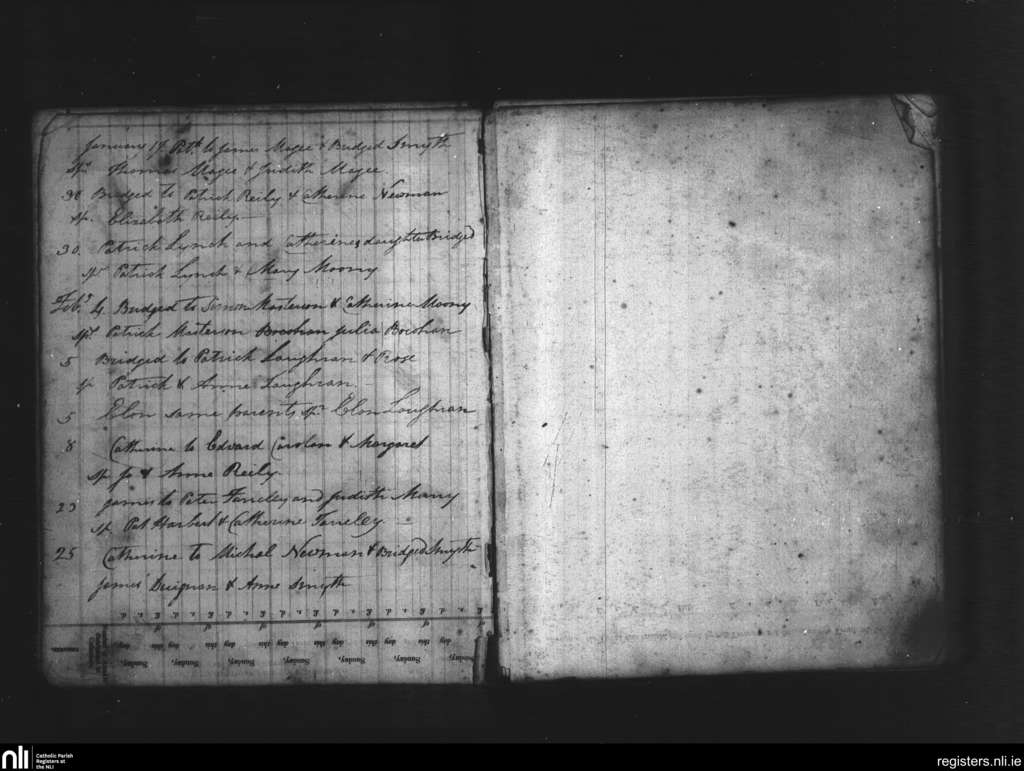 January 17 Pat.k to James Magee & Bridged Smyth
sp.rs Thomas Magee & Judith Magee
30 Bridged to Patrick Reily & Catherine Newman
sp. Elizabeth Reily
30. Patrick Lynch and Catherines daughter Bridged
sprs Patrick Lynch & Mary Moony
Feb.y 4 Bridged to Simon Masterson & Catherine Moony
sp.rs Patrick Masterson Brohan Julia Brohan
5 Bridged to Patrick Loughran & Rose
sp Patrick & Anne Loughran
5 Elon same parents sp.r Elon Loughran
8 Catherine to Edward Carolan & Margaret
sp Jo & Anne Reily
23 James to Peter Farreley and Judith Marry
sp. Pat Harbert & Catherine Farreley
25 Catherine to Michal Newman & Bridged Smyth
James Duignan & Anne Smyth
Sunday, Sunday, Sunday, Sunday, Sunday, Sunday, Sunday,
day this day this day this day this day this day this day
nli
Catholic Parish
Registers at
the NLI
registers.nli.ie